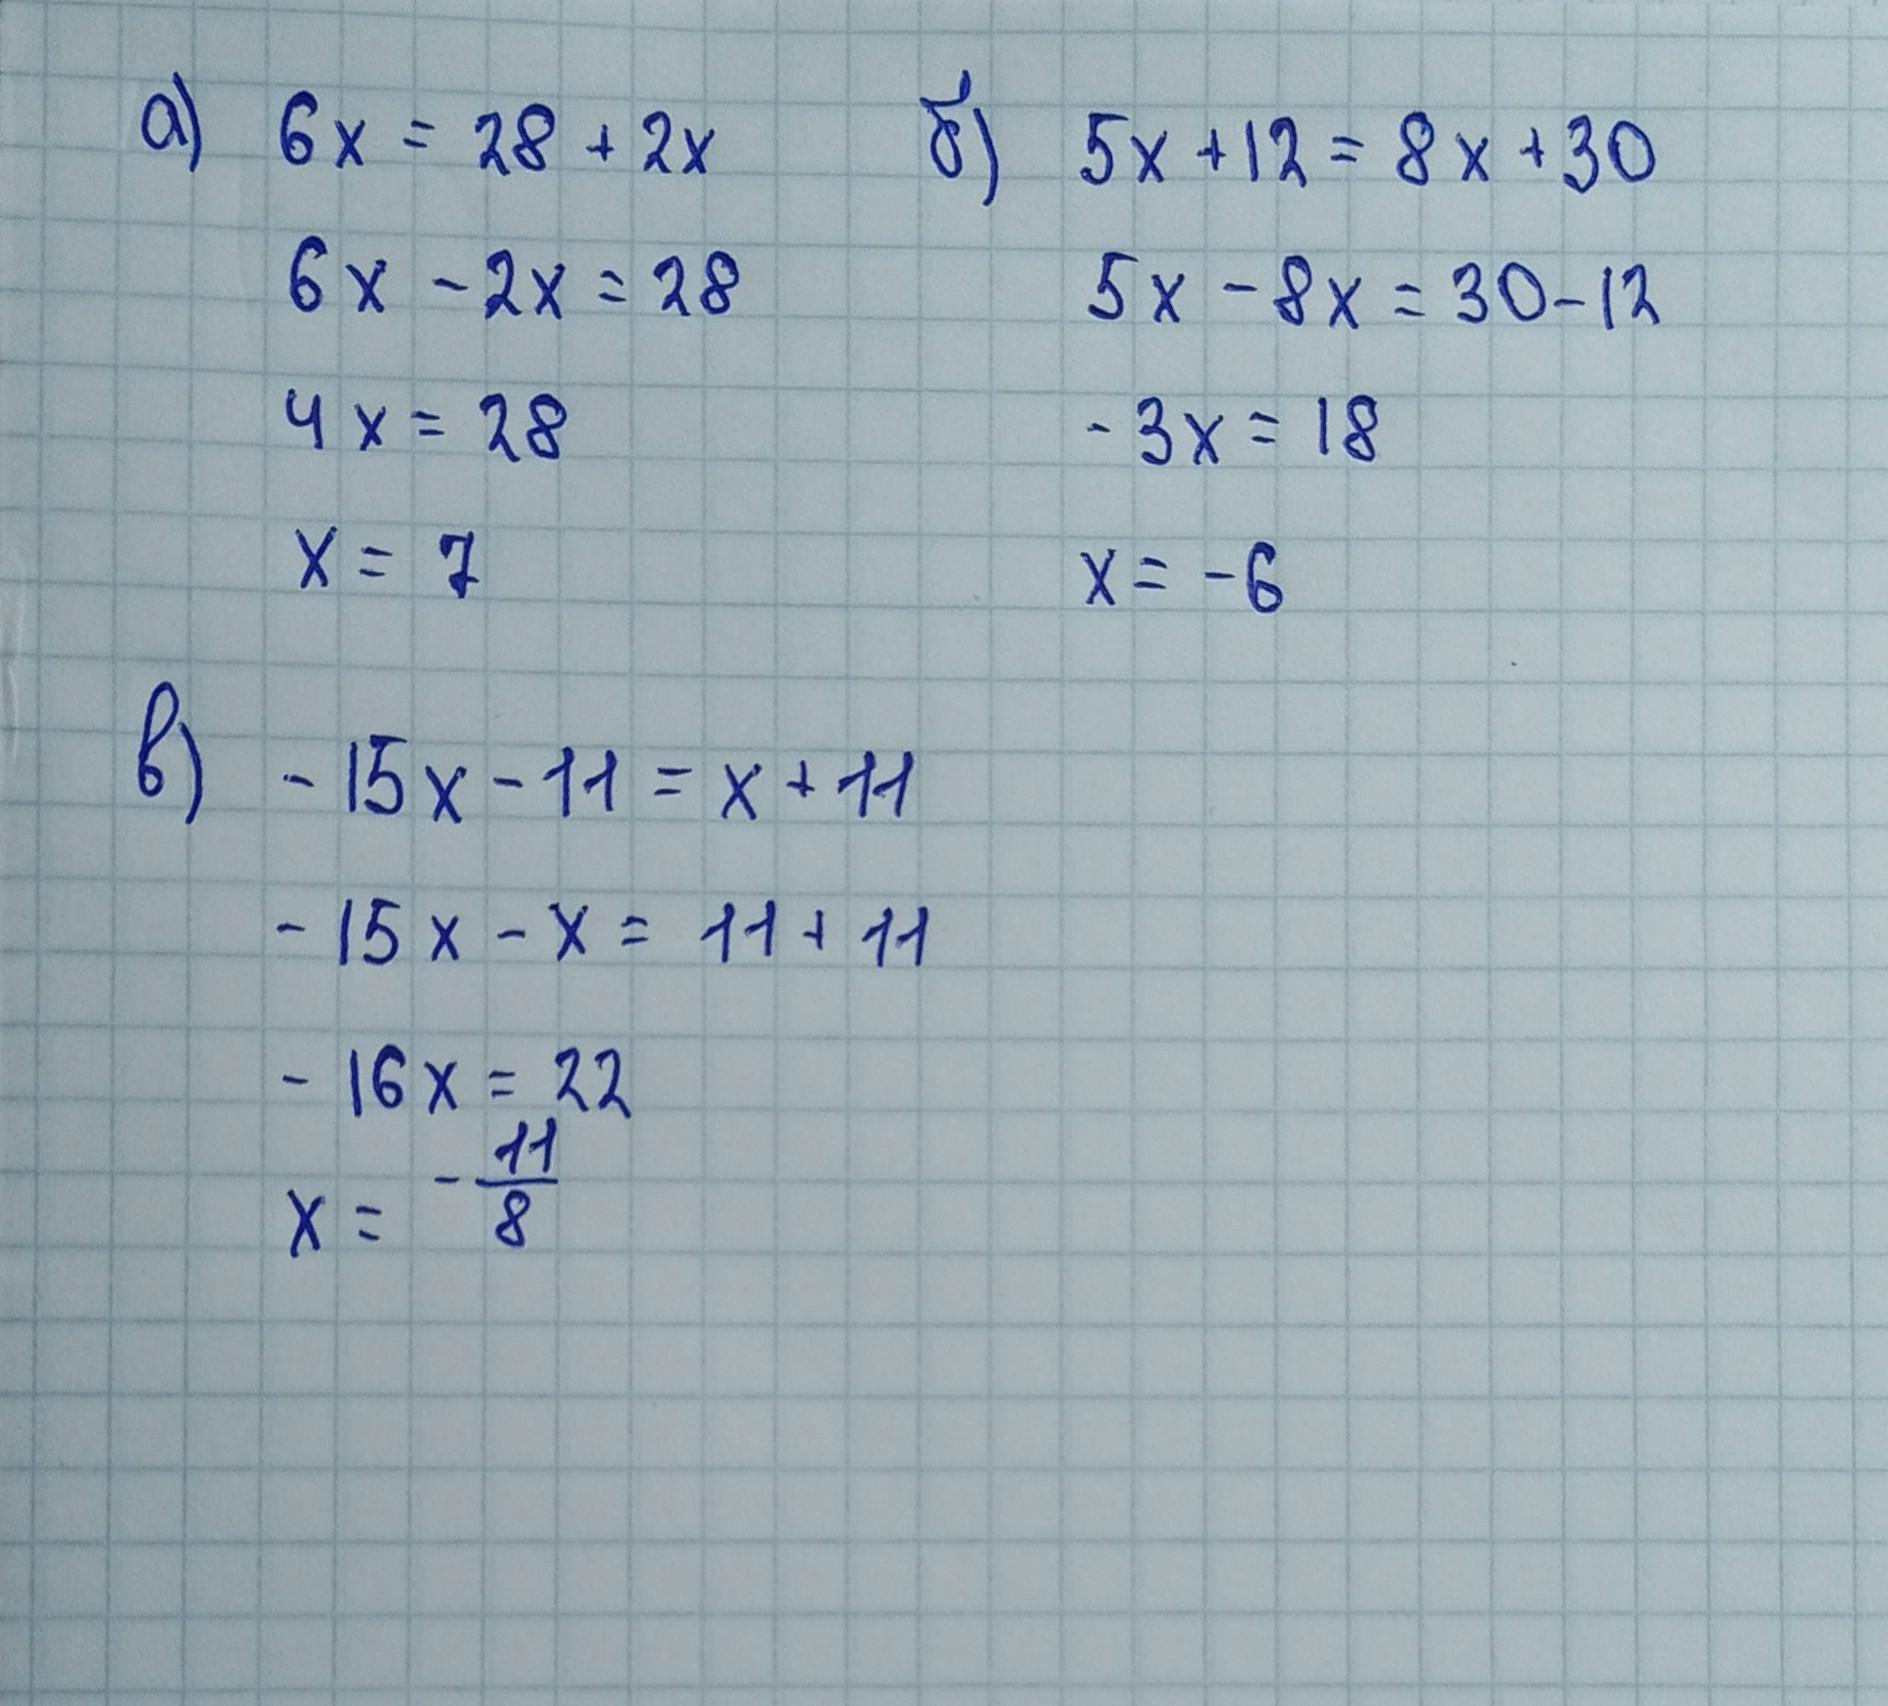 а) 6x = 28 + 2x
6x - 2x = 28
4x = 28
x = 7
б) 5x + 12 = 8x + 30
5x - 8x = 30 - 12
- 3x = 18
x = - 6
в) - 15x - 11 = x + 11
- 15x - x = 11 + 11
- 16x = 22
x = - 11/8